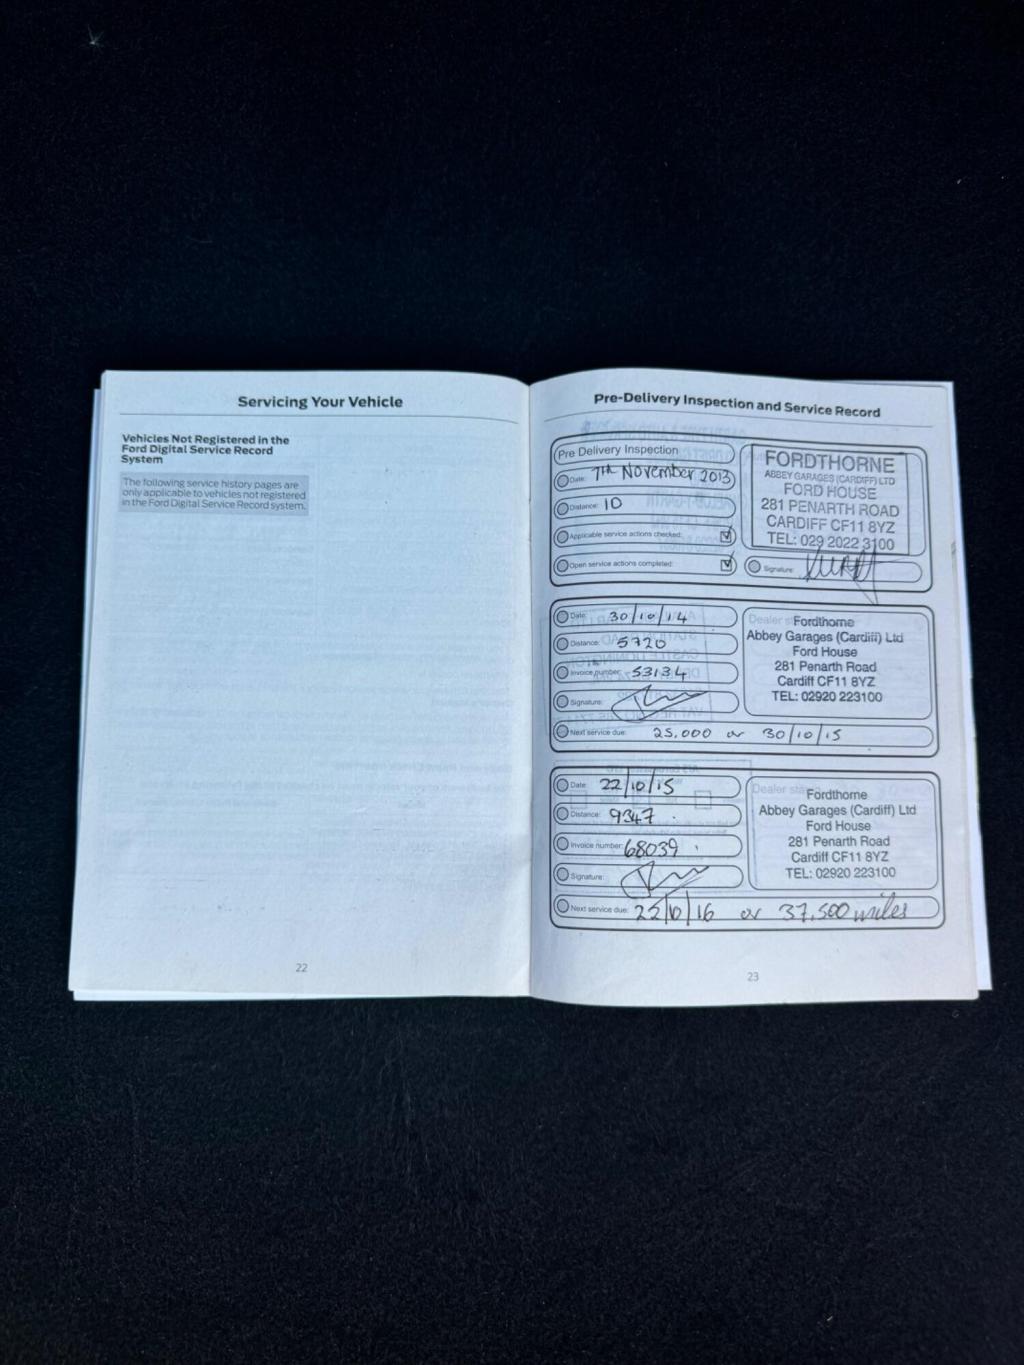 Servicing Your Vehicle
Vehicles Not Registered in the
Ford Digital Service Record
System
The following service history pages are
only applicable to vehicles not registered
in the Ford Digital Service Record system.
22
Pre-Delivery Inspection and Service Record
Pre Delivery Inspection
Date: 7th November 2013
Distance: 10
Applicable service actions checked:
Open service actions completed:
FORDTHORNE
ABBEY GARAGES (CARDIFF) LTD
FORD HOUSE
281 PENARTH ROAD
CARDIFF CF11 8YZ
TEL: 029 2022 3100
Signature:
Date: 30/10/14
Distance: 5720
Invoice number: 53134
Signature:
Next service due: 25,000 or 30/10/15
Dealer
Fordthorne
Abbey Garages (Cardiff) Ltd
Ford House
281 Penarth Road
Cardiff CF11 8YZ
TEL: 02920 223100
Date: 22/10/15
Distance: 9347
Invoice number: 68039
Signature:
Next service due: 22/10/16 or 37,500 miles
Dealer
Fordthorne
Abbey Garages (Cardiff) Ltd
Ford House
281 Penarth Road
Cardiff CF11 8YZ
TEL: 02920 223100
23